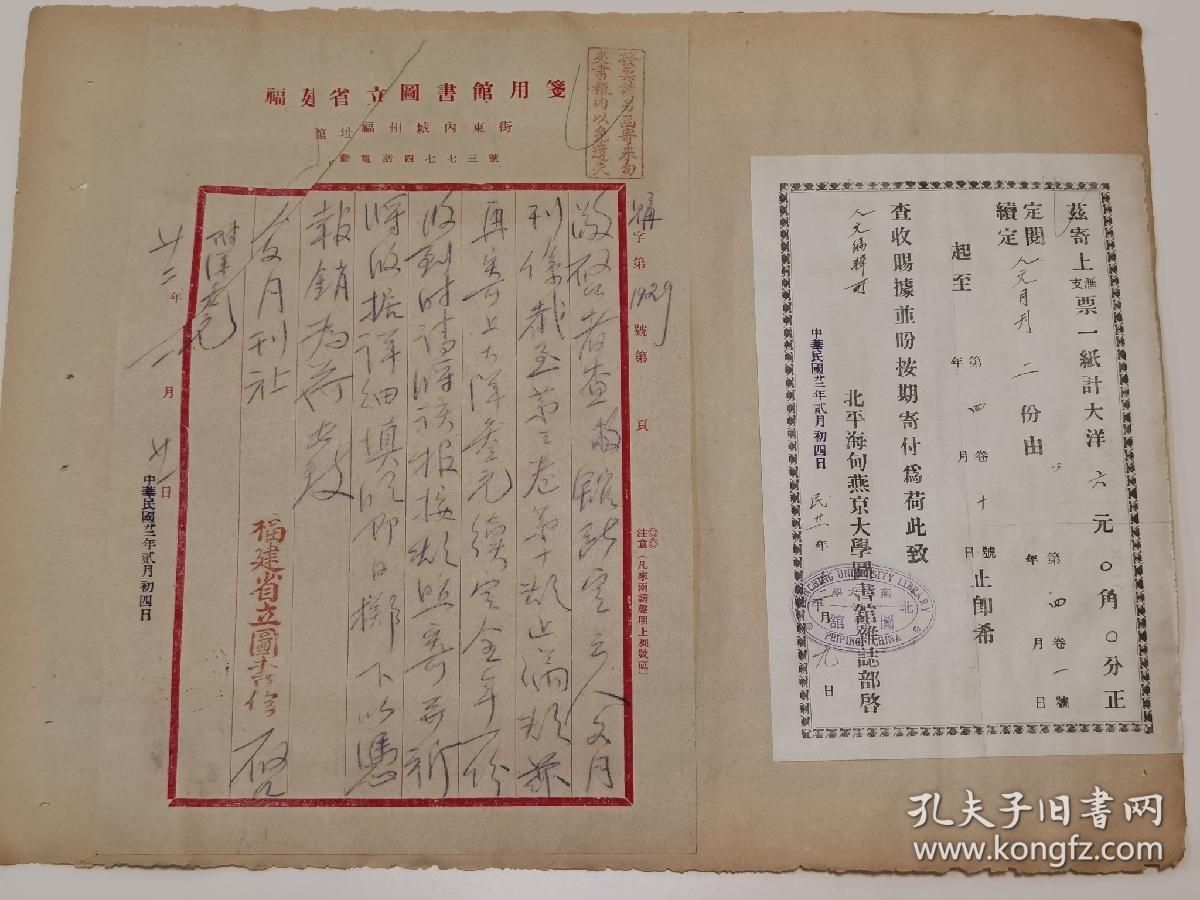 福建省立圖書館用箋
館址福州城內東街
電話四七七三號
發票請另函寄來勿
夾書報內以免遺失
字第1929號第 頁
注意(凡來函請聲明上列號碼)
敬啓者查敝館所定之人文月
刊係截至第三卷第十期止滿期茲
再寄上大洋叁元續定全年一份
收到時請將該報按期照寄並祈
將收據詳細填明即日擲下以憑
報銷為荷此致
人文月刊社
福建省立圖書館 啟
附洋叁元
廿二年一月廿 日
中華民國廿二年貳月初四日
茲寄上匯支票一紙計大洋六元〇角〇分正
定閱
續定
人文月刊二份由 年 月 日
第四卷一號
起至 年 月 日
第四卷十號
止即希
查收賜據並盼按期寄付為荷此致
人文編輯部
北平海甸燕京大學圖書館雜誌部啓
民廿二年二月九日
中華民國廿二年貳月初四日
YENCHING UNIVERSITY LIBRARY
PEIPING CHINA
孔夫子旧书网
www.kongfz.com